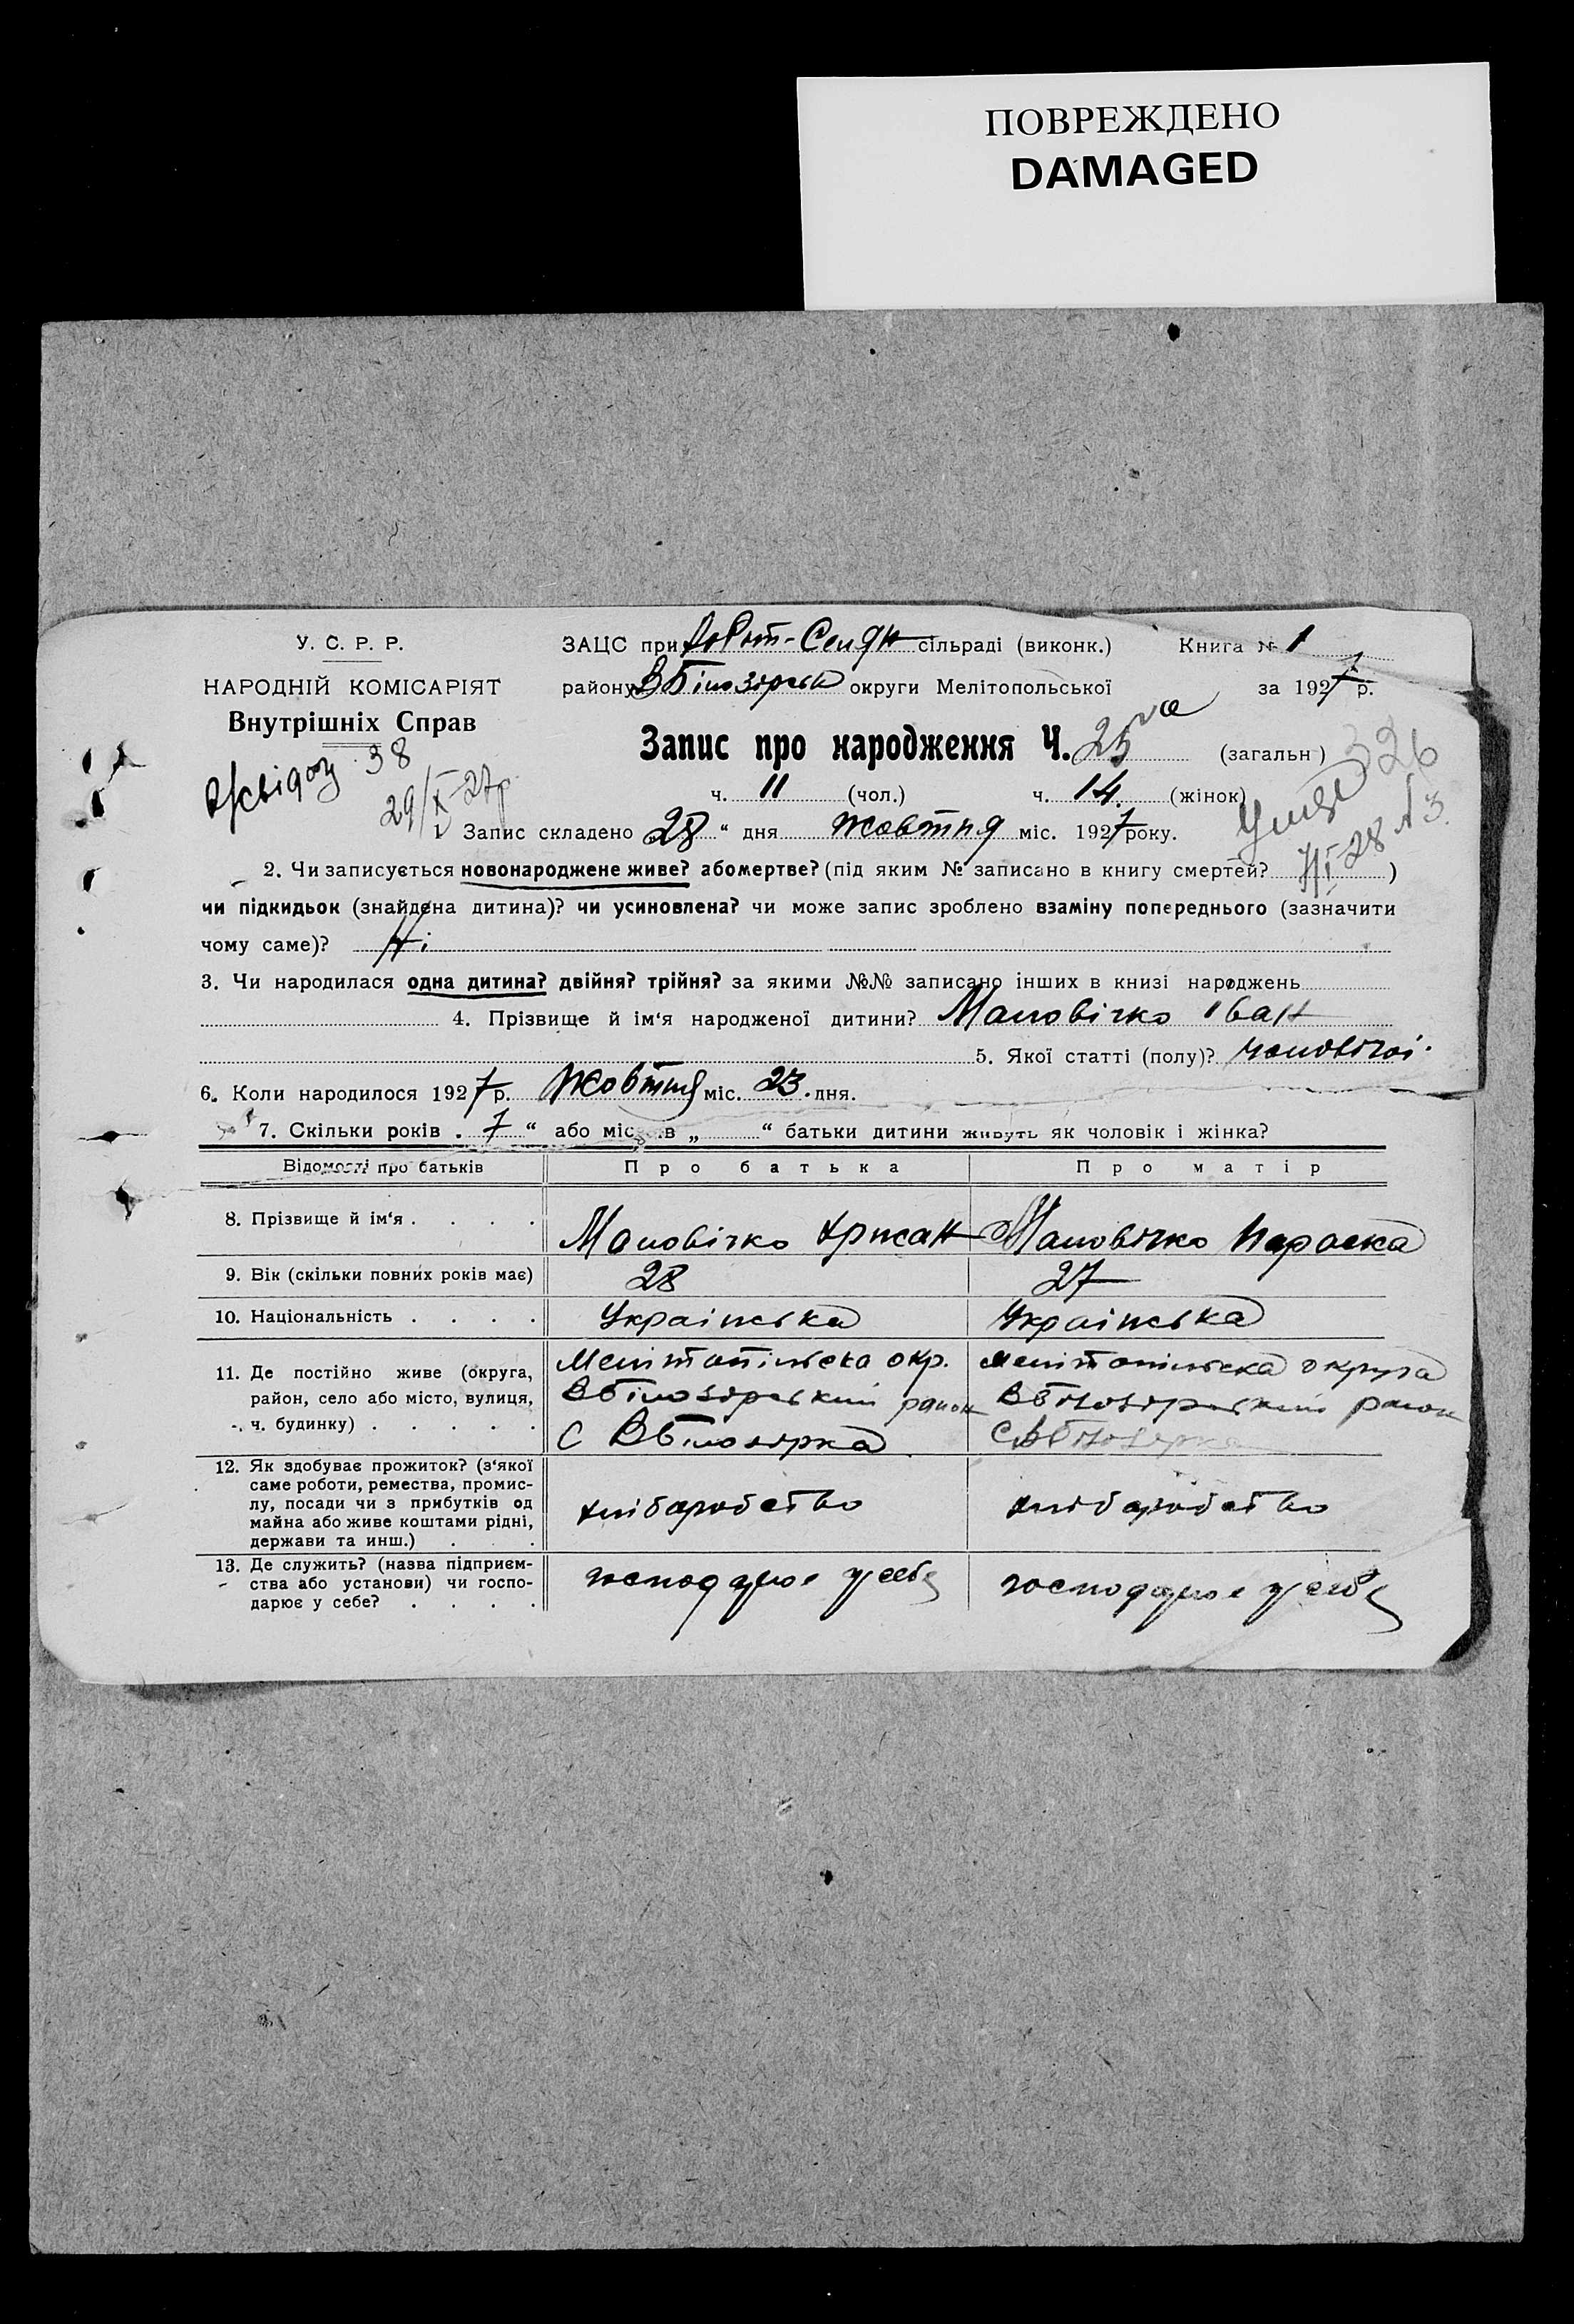 ПОВРЕЖДЕНО
DAMAGED
У. С. Р. Р.
НАРОДНІЙ КОМІСАРІЯТ
Внутрішніх Справ
ЗАЦС при сільраді (виконк.) Книга № 1
району В Білозірськ округи Мелітопольської за 1927 р.
Запис про народження Ч. 25 (загальн)
326
38
29/X-27р
ч. 11 (чол.) ч. 14. (жінок)
1. Запис складено 28 “ дня жовтня міс. 1927 року.
2. Чи записується новонароджене живе? або мертве? (під яким № записано в книгу смертей? )
чи підкидьок (знайдена дитина)? чи усиновлена? чи може запис зроблено взаміну попереднього (зазначити
чому саме)? Ні
3. Чи народилася одна дитина? двійня? трійня? за якими №№ записано інших в книзі народжень
4. Прізвище й ім‘я народженої дитини? Маловічко Іван
5. Якої статті (полу)? чоловічої
6. Коли народилося 1927 р. Жовтня міс. 23 дня.
7. Скільки років 7 “ або місяців „ “ батьки дитини живуть як чоловік і жінка?
Відомості про батьків Про батька Про матір
8. Прізвище й ім‘я . . . . Маловічко Хрисан Маловічко Параска
9. Вік (скільки повних років має) 28 27
10. Національність . . . . Українська Українська
11. Де постійно живе (округа, район, село або місто, вулиця, ч. будинку) . . . . .
Мелітопільска окр. Мелітопільска округа
В Білозірський район В Білозірський район
С В Білозірка С В Білозірка
12. Як здобуває прожиток? (з‘якої
саме роботи, ремества, промис-
лу, посади чи з прибутків од
майна або живе коштами рідні,
держави та инш.) . .
хлібаробство хлібаробство
13. Де служить? (назва підприєм-
ства або установи) чи госпо-
дарює у себе? . . . .
господарює у себе господарює у себе